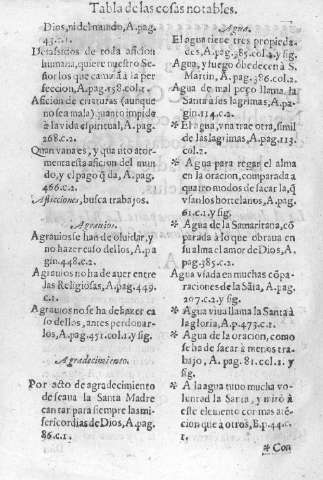 Tabla de las cosas notables.
Dios, ni del mundo, A. pag.
43. c. 1.
Desasidos de toda aficion
humana, quiere nuestro Se
ñor los que camină a la per
feccion, A. pag. 158. col. 1.
Aficion de criaturas (aunque
no sea mala) quanto impide
à la vida espiritual, A. pag.
268. c. 2.
Quan vana es, y quanto ator-
menta esta aficion del mun
do, y el pago q̃ da, A. pag.
466. c. 2.
Aflicciones, busca trabajos.
Agrauios.
Agrauios se han de oluidar, y
no hazer caso dellos, A. pa
gin. 448. c. 2.
Agrauios no ha de auer entre
las Religiosas, A. pag. 449.
c. 1.
Agrauios no se ha de hazer ca
so dellos, antes perdonar-
los, A. pag. 451. col. 1. y sig.
Agradecimiento.
Por acto de agradecimiento
deseaua la Santa Madre
cantar para siempre las mi-
sericordias de Dios, A. pag.
86. c. 1.
Agua.
El agua tiene tres propieda-
des, A. pag. 385. col. 2. y sig.
Agua, y fuego obedecen à S.
Martin, A. pag. 386. col. 2.
Agua de mal peso llama la
Santa à las lagrimas, A. pa-
gin. 114. c. 2.
* El agua, vna trae otra, simil
de las lagrimas, A. pag. 113.
col. 2.
* Agua para regar el alma
en la oracion, comparada à
quatro modos de sacarla, q̃
vsan los hortelanos, A. pag.
61. c. 1. y sig.
* Agua de la Samaritana, cõ
parada à lo que obraua en
su alma el amor de Dios, A.
pag. 385. c. 2.
Agua vsada en muchas cõpa-
raciones de la Sãta, A. pag.
207. c. 2. y sig.
* Agua viua llama la Santa à
la gloria, A. p. 473. c. 1.
* Agua de la oracion, como
se ha de sacar à menos tra-
bajo, A. pag. 81. col. 1. y
sig.
* A la agua tuuo mucha vo
luntad la Santa, y mirò à
este elemento con mas atē-
cion que à otros, B. p. 44. c.
1.
* Con